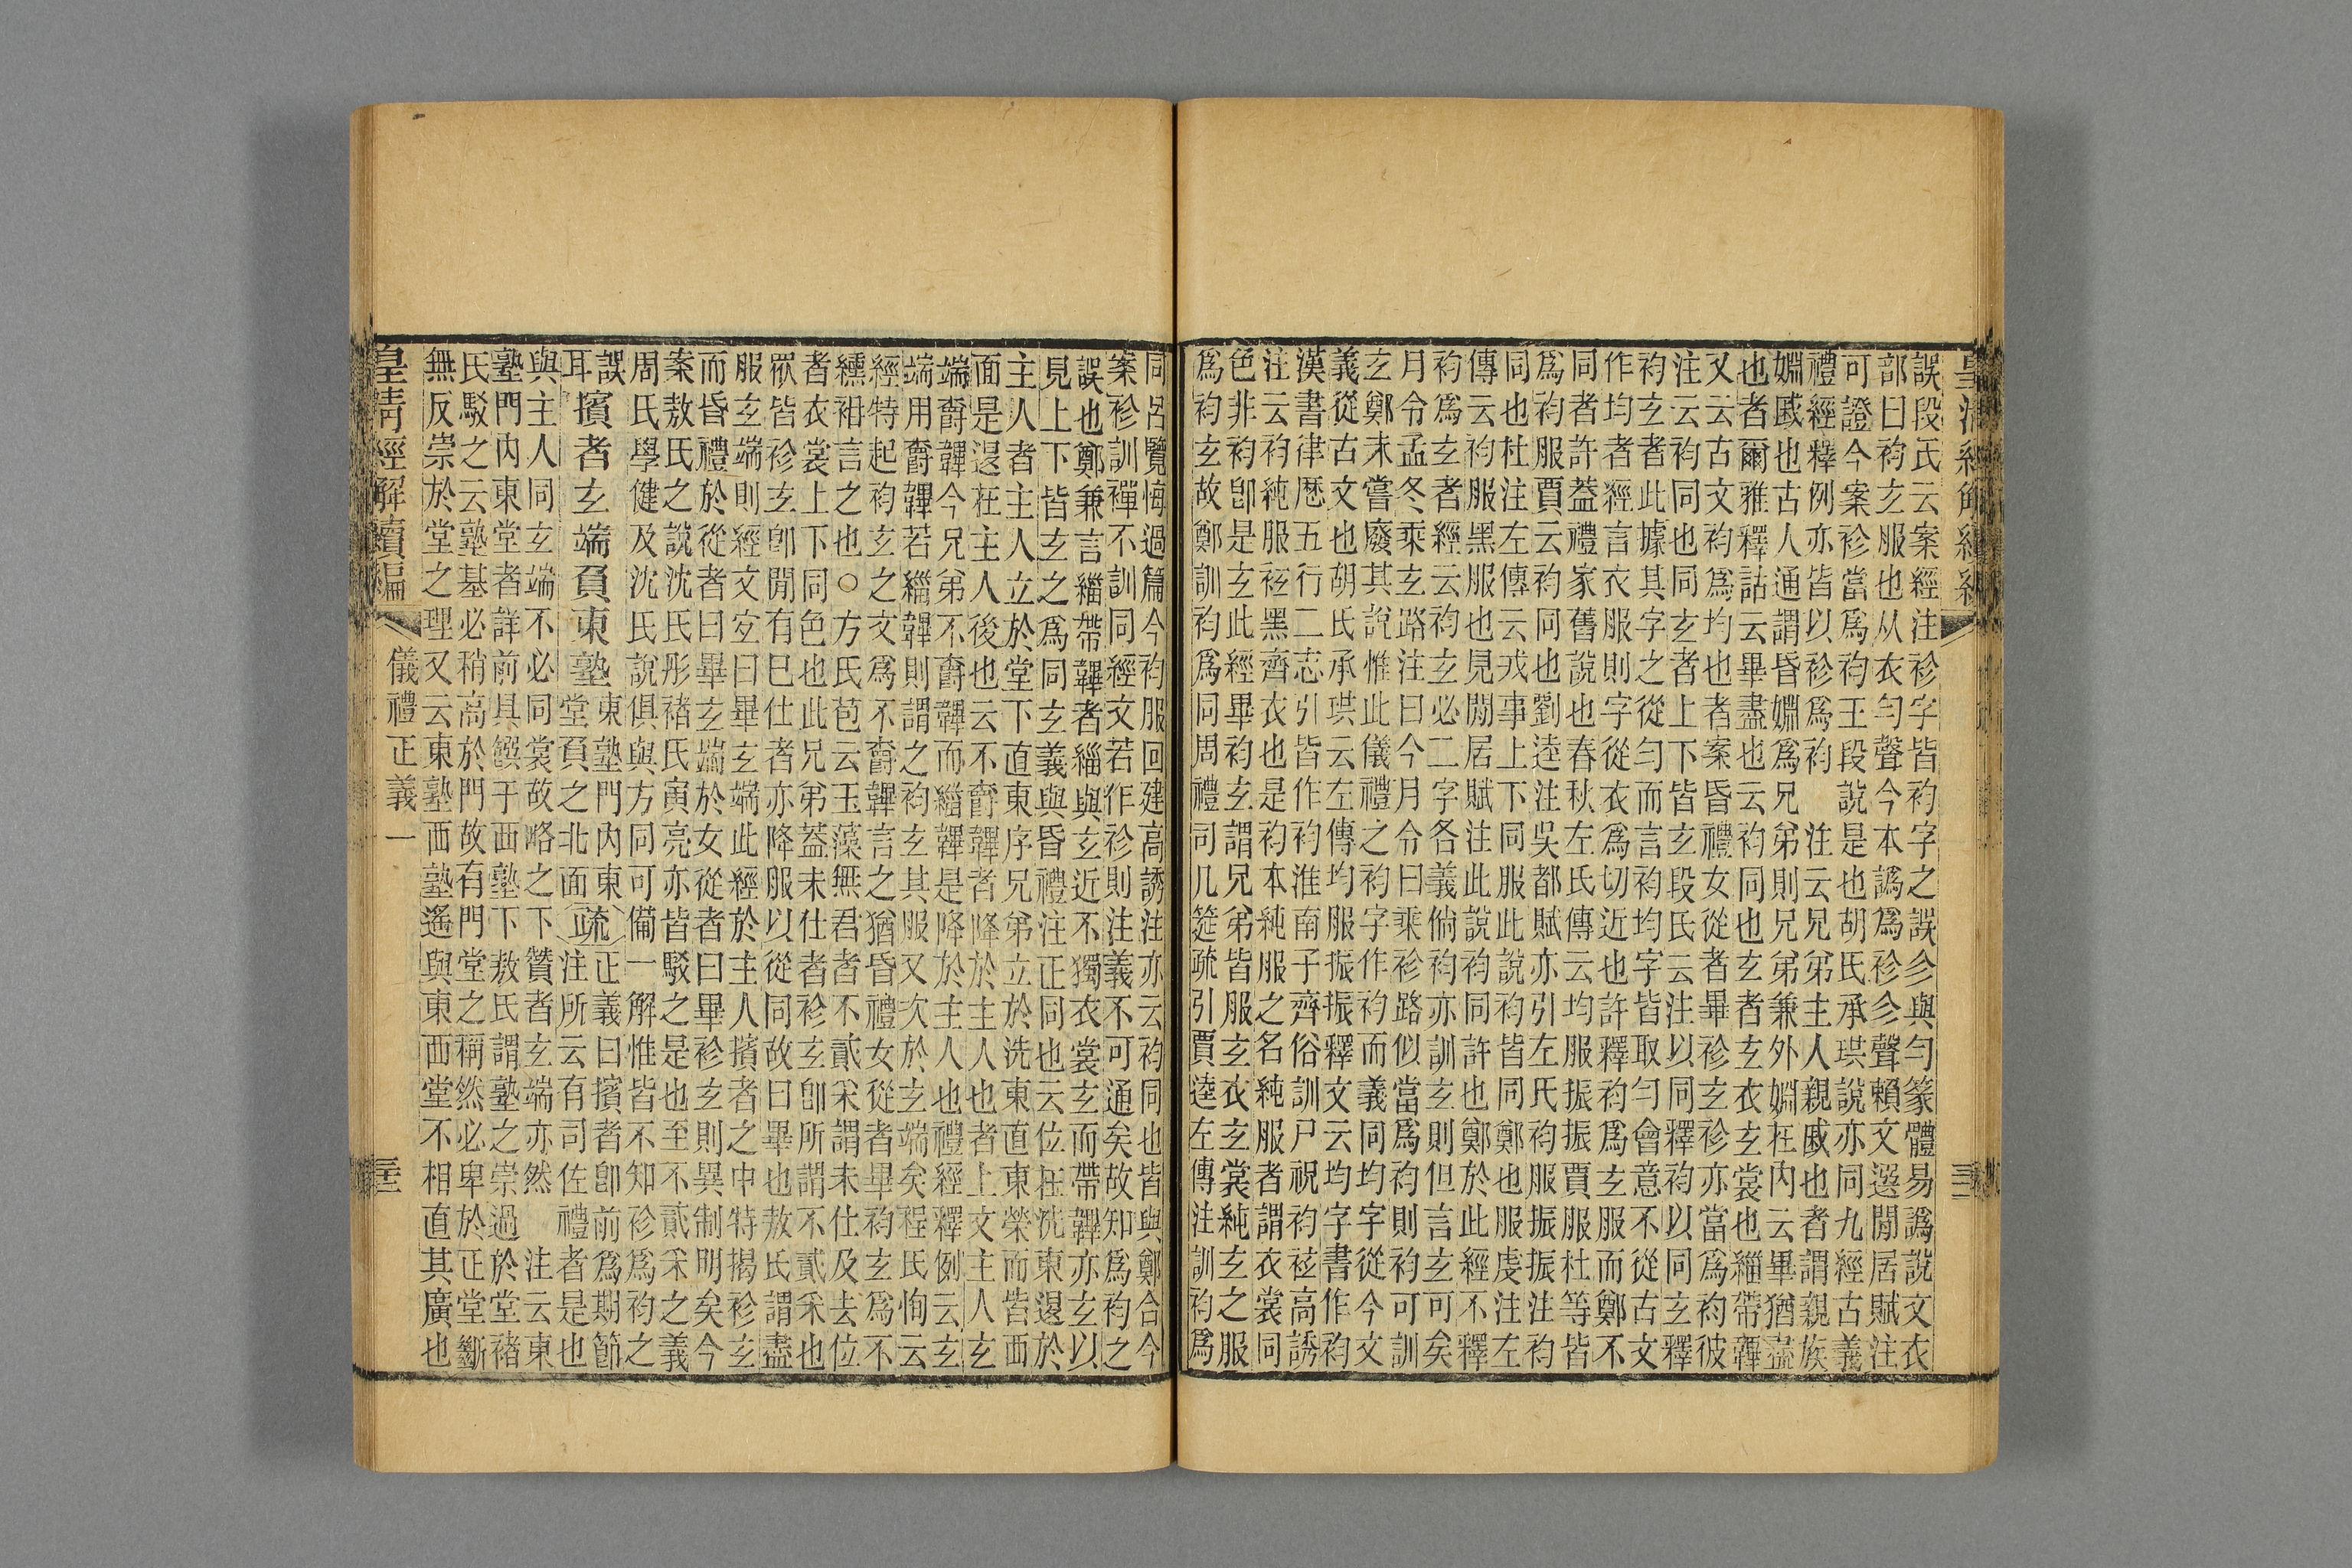 皇清經解續編
誤段氏云案經注袗字皆袀字之誤㐱與勻篆體易譌說文衣
部曰袀玄服也从衣勻聲今本譌爲袗㐱聲賴文選閒居賦注
可證今案袗當爲袀王段說是也胡氏承珙說亦同九經古義
禮經釋例亦皆以袗爲袀 注云兄弟主人親戚也者謂親族
婣戚也古人通謂昏婣爲兄弟則兄弟兼外婣在內云畢猶盡
也者爾雅釋詁云畢盡也云袀同也玄者玄衣玄裳也緇帶韠
又云古文袀爲均也者案昏禮女從者畢袗玄袗亦當爲袀彼
注云袀同也同玄者上下皆玄段氏云注以同釋袀以同玄釋
袀玄者此據其字之從勻而言袀均字皆取勻會意不從古文
作均者經言衣服則字從衣爲切近也許釋袀爲玄服而鄭不
同者許葢禮家舊說也春秋左氏傳云均服振振賈服杜等皆
爲袀服賈云袀同也劉逵注吳都賦亦引左氏袀服振振注袀
同也杜注左傳云戎事上下同服此說袀皆同鄭也服虔注左
傳云袀服黑服也見閒居賦注此說袀同許也鄭於此經不釋
袀爲玄者經云袀玄必二字各義倘袀亦訓玄則但言玄可矣
月令孟冬乘玄路注曰今月令曰乘袗路似當爲袀則袀可訓
玄鄭未嘗廢其說惟此儀禮之袀字作袀而義同均字從今文
義從古文也胡氏承珙云左傳均服振振釋文云均字書作袀
漢書律厯五行二志引皆作袀淮南子齊俗訓尸祝袀袨高誘
注云袀純服袨黑齊衣也是袀本純服之名純服者謂衣裳同
色非袀卽是玄此經畢袀玄謂兄弟皆服玄衣玄裳純玄之服
爲袀玄故鄭訓袀爲同周禮司几筵疏引賈逵左傳注訓袀爲
同呂覽悔過篇今袀服回建高誘注亦云袀同也皆與鄭合今
案袗訓襌不訓同經文若作袗則注義不可通矣故知爲袀之
誤也鄭兼言緇帶韠者緇與玄近不獨衣裳玄而帶韠亦玄以
見上下皆玄之爲同玄義與昏禮注正同也云位在洗東退於
主人者主人立於堂下直東序兄弟立於洗東直東榮而皆西
面是退在主人後也云不爵韠者降於主人也者上文主人玄
端爵韠今兄弟不爵韠而緇韠是降於主人也禮經釋例云玄
端用爵韠若緇韠則謂之袀玄其服又次於玄端矣程氏恂云
經特起袀玄之文爲不爵韠言之猶昏禮女從者畢袀玄爲不
纁袡言之也○方氏苞云玉藻無君者不貳采謂未仕及去位
者衣裳上下同色也此兄弟葢未仕者袗玄卽所謂不貳采也
眾皆袗玄卽閒有巳仕者亦降服以從同故曰畢也敖氏謂盡
服玄端則經文宐曰畢玄端此經於主人擯者之中特揭袗玄
而昏禮於從者曰畢玄端於女從者曰畢袗玄則異制明矣今
案敖氏之說沈氏彤褚氏寅亮亦皆駁之是也至不貳采之義
周氏學健及沈氏說俱與方同可備一解惟皆不知袗爲袀之
誤
耳擯者玄端負東塾東塾門內東堂負之北面疏正義曰擯者卽前爲期節注所云有司佐禮者是也
與主人同玄端不必同裳故略之下贊者玄端亦然 注云東
塾門內東堂者詳前具饌于西塾下敖氏謂塾之崇過於堂褚
氏駁之云塾基必稍高於門故有門堂之稱然必卑於正堂斷
無反崇於堂之理又云東塾西塾遙與東西堂不相直其廣也
皇清經解續編 儀禮正義一